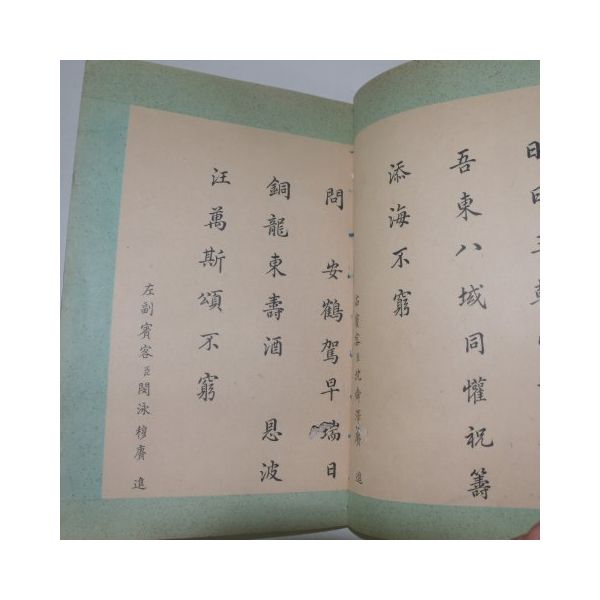 吾東八域同懽祝籌
添海不窮
右賓客臣沈舜澤賡進
問 安鶴駕早瑞日
銅龍東壽酒 恩波
汪萬斯頌不窮
左副賓客臣閔泳穆賡進